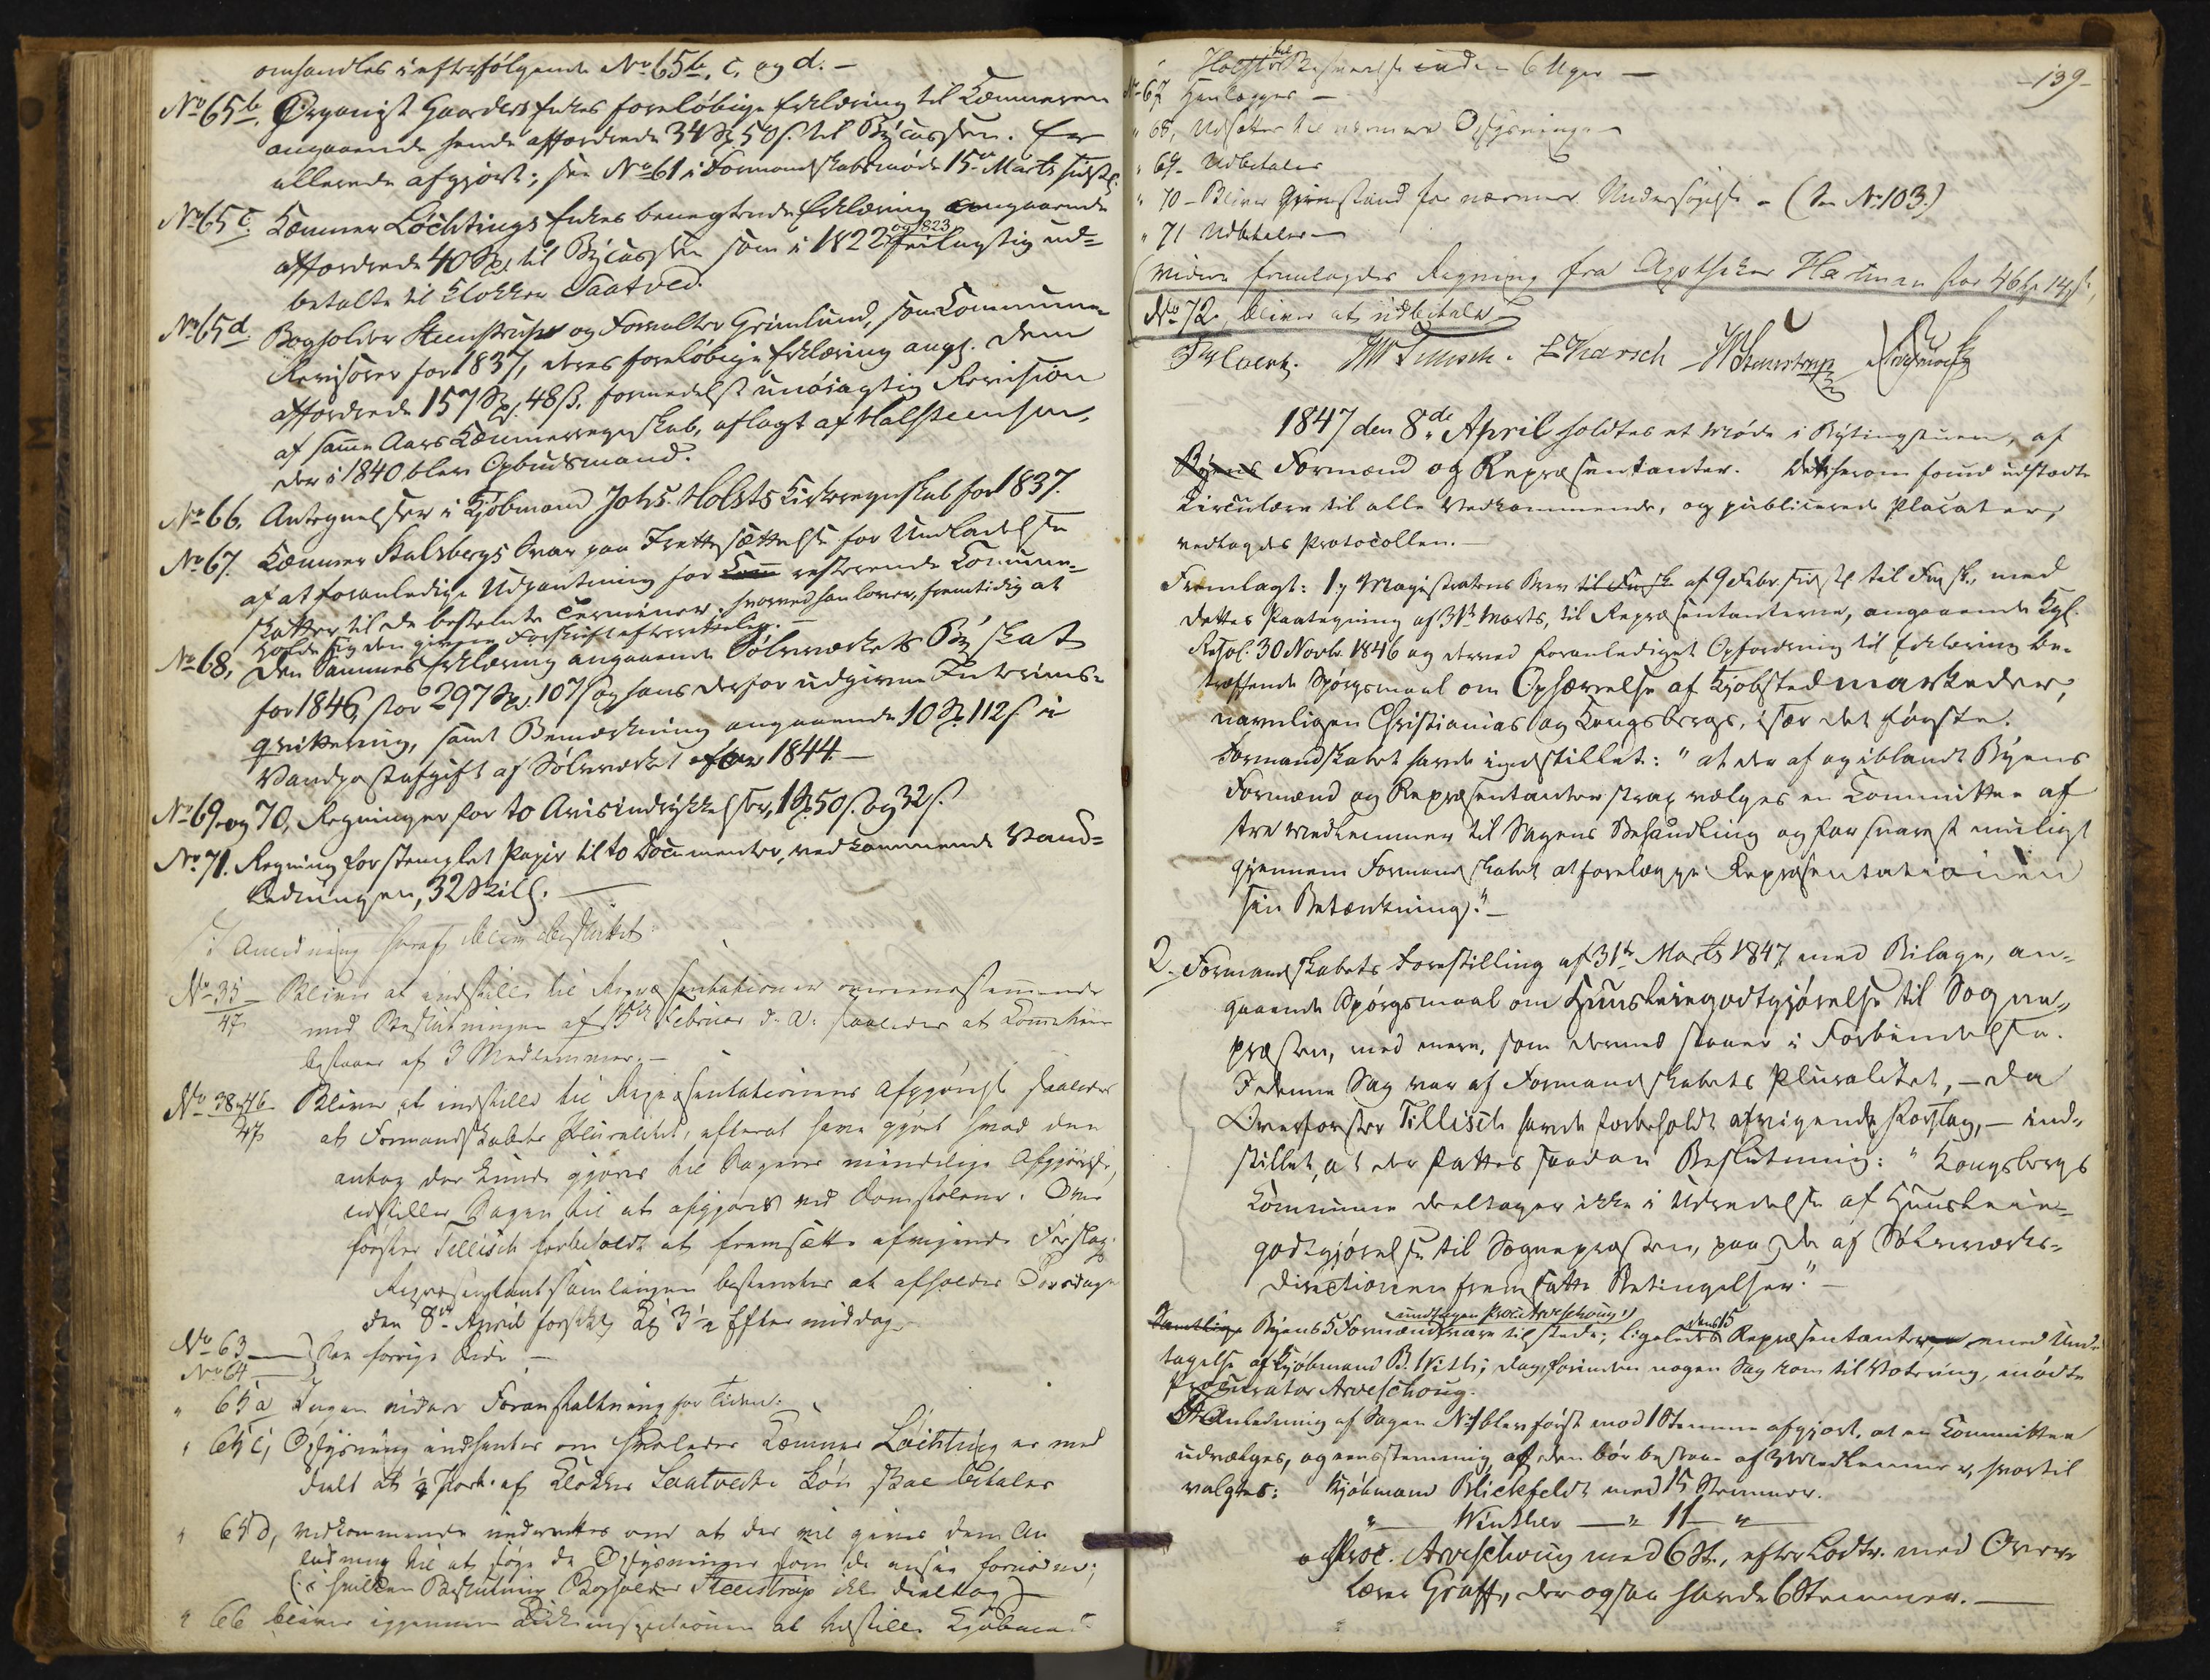 omhandles i efterfølgende No 65b, c, og d. –
No 65b. Organist Gaarders Enkes foreløbige Erklæring til Kæmneren
angaaende hende affordrede 34 Spd 50 s. til Bycassen. Er
allerede afgjort; see No 61 i Formandskabsmøde 15de Marts sidstl.
No 65c. Kæmner Løchtings Enkes benegtende Erklæring angaaende
affordrede 40 Spd. til Bycassen som i 1822 og 1823 feilagtig ud=
betalte til Klokker Saatvedt.
No 65d. Bogholder Steenstrup og Forvalter Grimlund, som Commune-
Revisorer for 1837, deres foreløbige Erklæring angl. dem
affordrede 157 Spd. 48 ß. formedelst unøiagtig Revision
af samme Aars Kæmnerregnskab, aflagt af Halsteensen,
der i 1840 blev Opbudsmand.
No 66. Antegnelser i Kjøbmand Johs. Holsts Kirkeregnskab for 1837.
No 67. Kæmner Stalsbergs Svar paa Irettesættelse for Undladelse
af at foranledige Udpantning for Com resterende Commune-
skatter til de bestemte Terminer, hvorved han lover, fremtidig at
holde sig den givne Forskrift efterrettelig. –
No 68, Den Sammes Erklæring angaaende Sølvværkets Byskat
for 1846, stor 297 Spd. 107 s og hans derfor udgivne Interims-
qvittering, samt Bemærkning angaaende 10 Sp. 112 s. i
Vandpostafgift af Sølvværket for 1844. –
No 69 og 70, Regninger for to Avisindrykkelser, 1 Sp. 50 s. og 32 s.
No 71. Regning for stemplet Papir til to Documenter, vedkommende Vand=
ledningen, 32 Skill. –
I Anledning heraf blev besluttet:
No 35/47 Bliver at indstille til Repræsentationen overensstemmende
med Beslutningen af 15de Februar d. A. saaledes at Komiteen
bestaaer af 3 Medlemmer. –
No 38, 46/47 Bliver at indstille til Repræsentationens Afgjørelse saaledes
at Formandskabets Pluralitet, efterat have gjort hvad den
antog der kunde gjøres til Sagens mindelige Afgjørelse,
indstiller Sagen til at afgjøres ved Domstolene. Over
førster Tillisch forbeholdt at fremsætte afvigende Forslag.
Repræsentantsamlingen bestemtes at afholdes Torsdagen
den 8de April førstk. Kl 3½ Eftermiddag.
No 63
No 64 } See forrige Side –
" 65 a Ingen videre Foranstaltning for Tiden.
" 65 c, Oplysning indhentes om hvorledes Kæmner Løchting er med
deelt at ½ Part af Klokker Saatvedts Løn skal betales
" 65 d, vedkommende underrettes om at der vil gives dem An
ledning til at søge de Oplysninger som de ansee fornødne;
(i hvilken Beslutning Bogholder Steenstrup ikke deeltog)
" 66 bliver igjennem Kirkeinspectionen at tilstille Kjøbmand
– 139 –
Holst til Besvarelse inden 6 Uger –
No 67 Henlægges –
" 68, Udsættes til nærmere Oplysning
" 69 – Udbetales
" 70 – Bliver Gjenstand for nærmere Undersøgelse – (see No 103.)
" 71 Udbetales –
Videre fremlagdes Regning fra Apotheker Hartman stor 46 14 s,
No 72, bliver at udbetale
Tillisch. L Karsch Steenstrup
1847 den 8de April holdtes et Møde i Bytingstuen, af
Byens Formænd og Repræsentanter. Det herom fornd udstædte
Circulære til alle Vedkommende, og publicerede Placater,
vedlagdes Protocollen. –
Fremlagt: 1, Magistratens Brev til Fmsk. af 9 Febr. sidstl til Fmsk., med
dettes Paategning af 31te Marts, til Repræsentanterne, angaaende Kgl.
Resol. 30 Novbr. 1846 og derved foranlediget Opfordring til Erklæring be-
træffende Spørgsmaal om Ophævelse af Kjøbstedmarkeder,
navnligen Christianias og Kongsbergs, især det første.
Formandskabet havde indstillet: "at der af og iblandt Byens
Formænd og Repræsentanter strax vælges en Committee af
tre Medlemmer til Sagens Behandling og for snarest muligt
gjennem Formandskabet at forelægge Repræsentationen
sin Betænkning." –
2. Formandskabets Forestilling af 31te Marts 1847 med Bilage, an-
gaaende Spørgsmaal om Huusleiegodtgjørelse til Sogne-
præsten, med mere, som dermed staaer i Forbindelse.
I denne Sag var af Formandskabets Pluralitet, – da
Overførster Tillisch havde forbeholdt afvigende Forslag, – ind-
stillet, at der fattes saadan Beslutning: "Kongsbergs
Kommune deeltager ikke i Udredelse af Huusleie-
godtgjørelse til Sognepræsten, paa de af Sølvværks-
directionen fremsatte Betingelser." –
Samtlige Byens 5 Formænd undtagen Proc. Arveschoug, vare tilstede; ligeledes dens 15 Repræsentanter med Und-
tagelse af Kjøbmand B. With; dog, forinden nogen Sag kom til Votering, mødte
Procurator Arveschoug.
I Anledning af Sagen No 1 blev først mod 1 Stemme afgjort, at en Committee
udvælges, og eensstemmig, at den bør bestaae af 3 Medlemmer, hvortil
valgtes: Kjøbmand Blickfeldt med 15 Stemmer.
" Winther – " 11 – "
og Proc. Arveschoug med 6 St., efter Lodtr. med Over-
lærer Graff, der ogsaa havde 6 Stemmer. –